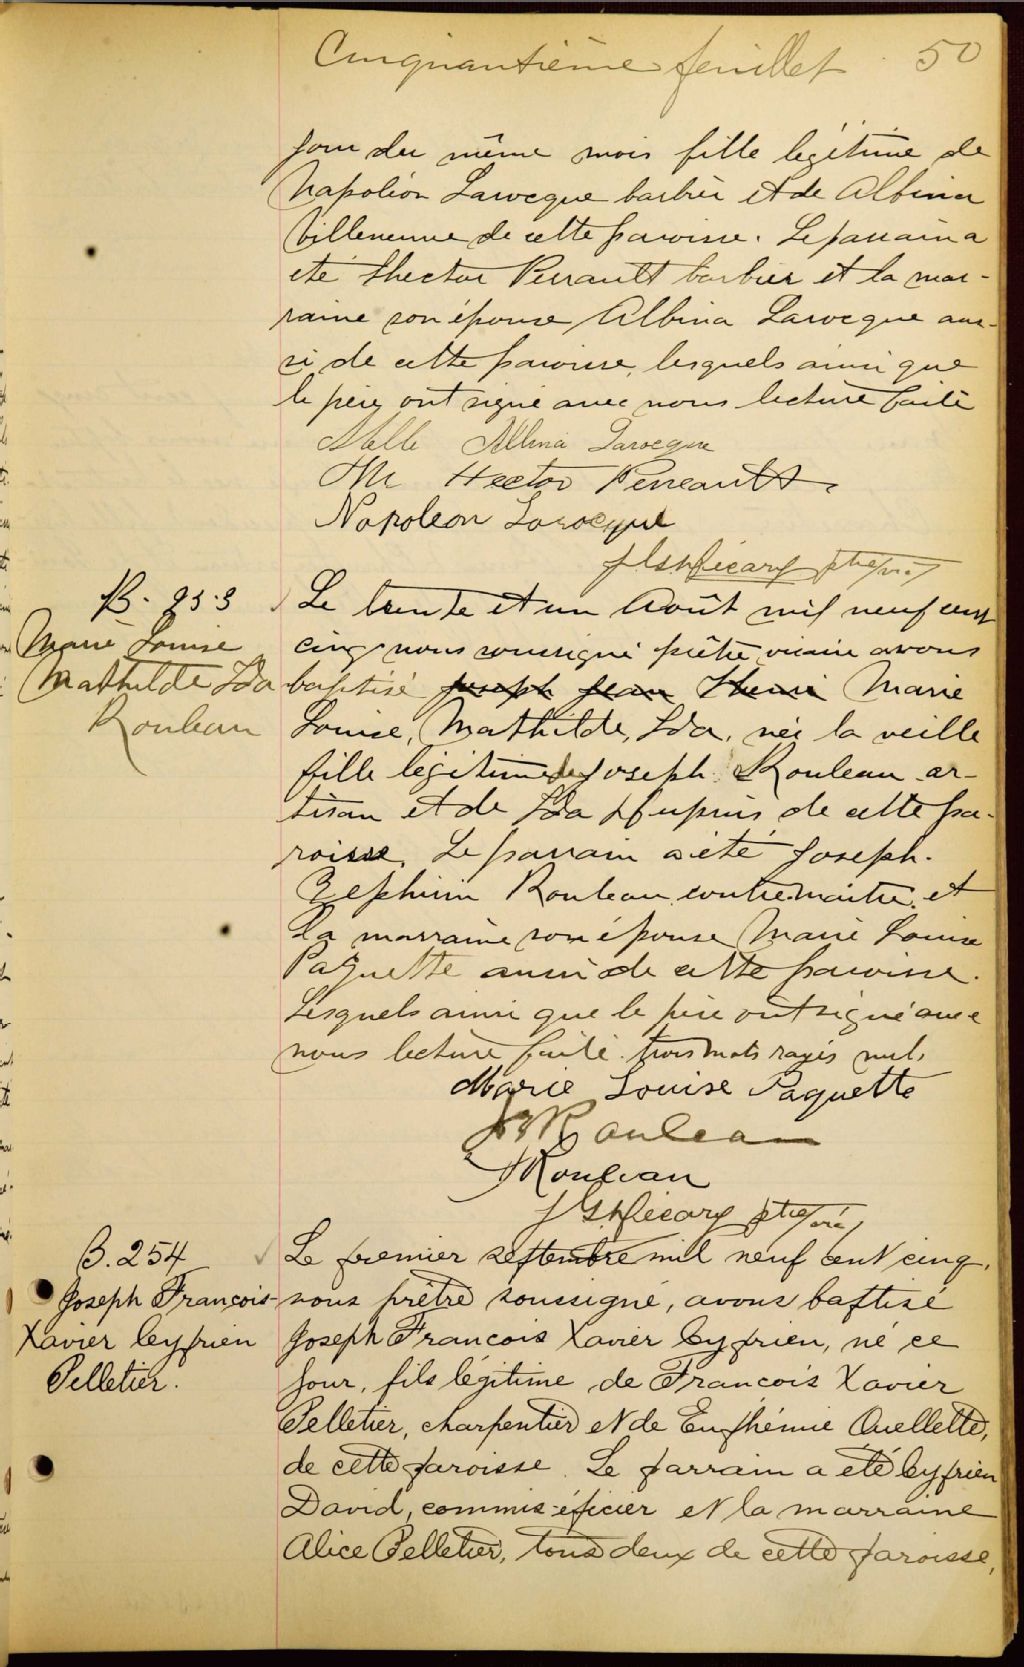 Cinquantième feuillet 50
jour du même mois fille légitime de
Napoléon Larocque barbier et de Albina
Villeneuve de cette paroisse. Le parrain a
eté Hector Perrault barbier et la mar-
raine son épouse Albina Larocque aus-
si de cette paroisse, lesquels ainsi que
le père, ont signé avec nous lecture faite
Albina Larocque
Hector Perreault
Napoleon Larocque
ptre/vic/
B. 253
Marie Louise
Mathilde Ida
Rouleau
Le trente et un Août mil neuf cent
cinq nous soussigné prêtre vicaire avons
baptisé Joseph Jean Henri Marie
Louise, Mathilde, Ida, née la veille
fille légitime de Joseph Rouleau ar-
tisan et de Ida Dupuis de cette pa-
roisse. Le parrain a été Joseph-
Zephirin Rouleau contremaitre et
la marraine son épouse Marie Louise
Paquette aussi de cette paroisse.
Lesquels ainsi que le père ont signé avec
nous lecture faite. trois mots rayés nuls
Marie Louise Paquette
JZ Rouleau
J Rouleau
ptre/vic/
B. 254
Joseph François-
Xavier Cyprien
Pelletier.
Le premier septembre mil neuf cent cinq,
nous prêtre soussigné, avons baptisé
Joseph François Xavier Cyprien, né ce
jour, fils légitime de François Xavier
Pelletier, charpentier et de Euphémie Ouellette,
de cette paroisse. Le parrain a été Cyprien
David, commis-épicier et la marraine
Alice Pelletier, tous deux de cette paroisse,